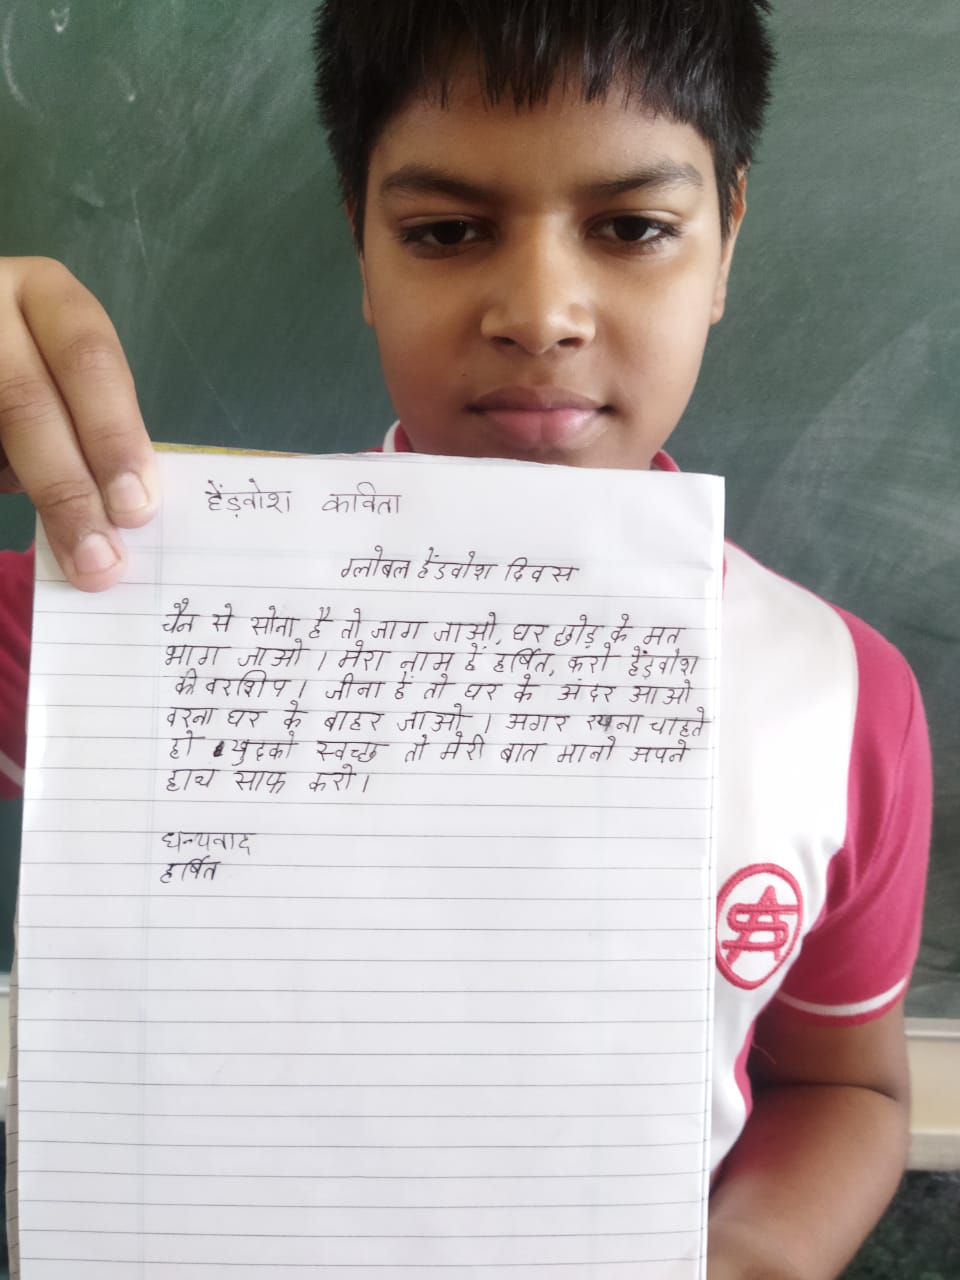 हेंड़वोश कविता
ग्लोबल हेंडवोश दिवस
चैन से सोना है तो जाग जाओ, घर छोड़ के मत
भाग जाओ । मेरा नाम हें हर्षित, करो हेंड़वोश
की वरशिप। जीना हें तो घर के अंदर आओ
वरना घर के बाहर जाओ । अगर रखना चाहते
हो खुदको स्वच्छ तो मेरी बात मानो अपने
हाथ साफ करो।
धन्यवाद
हर्षित